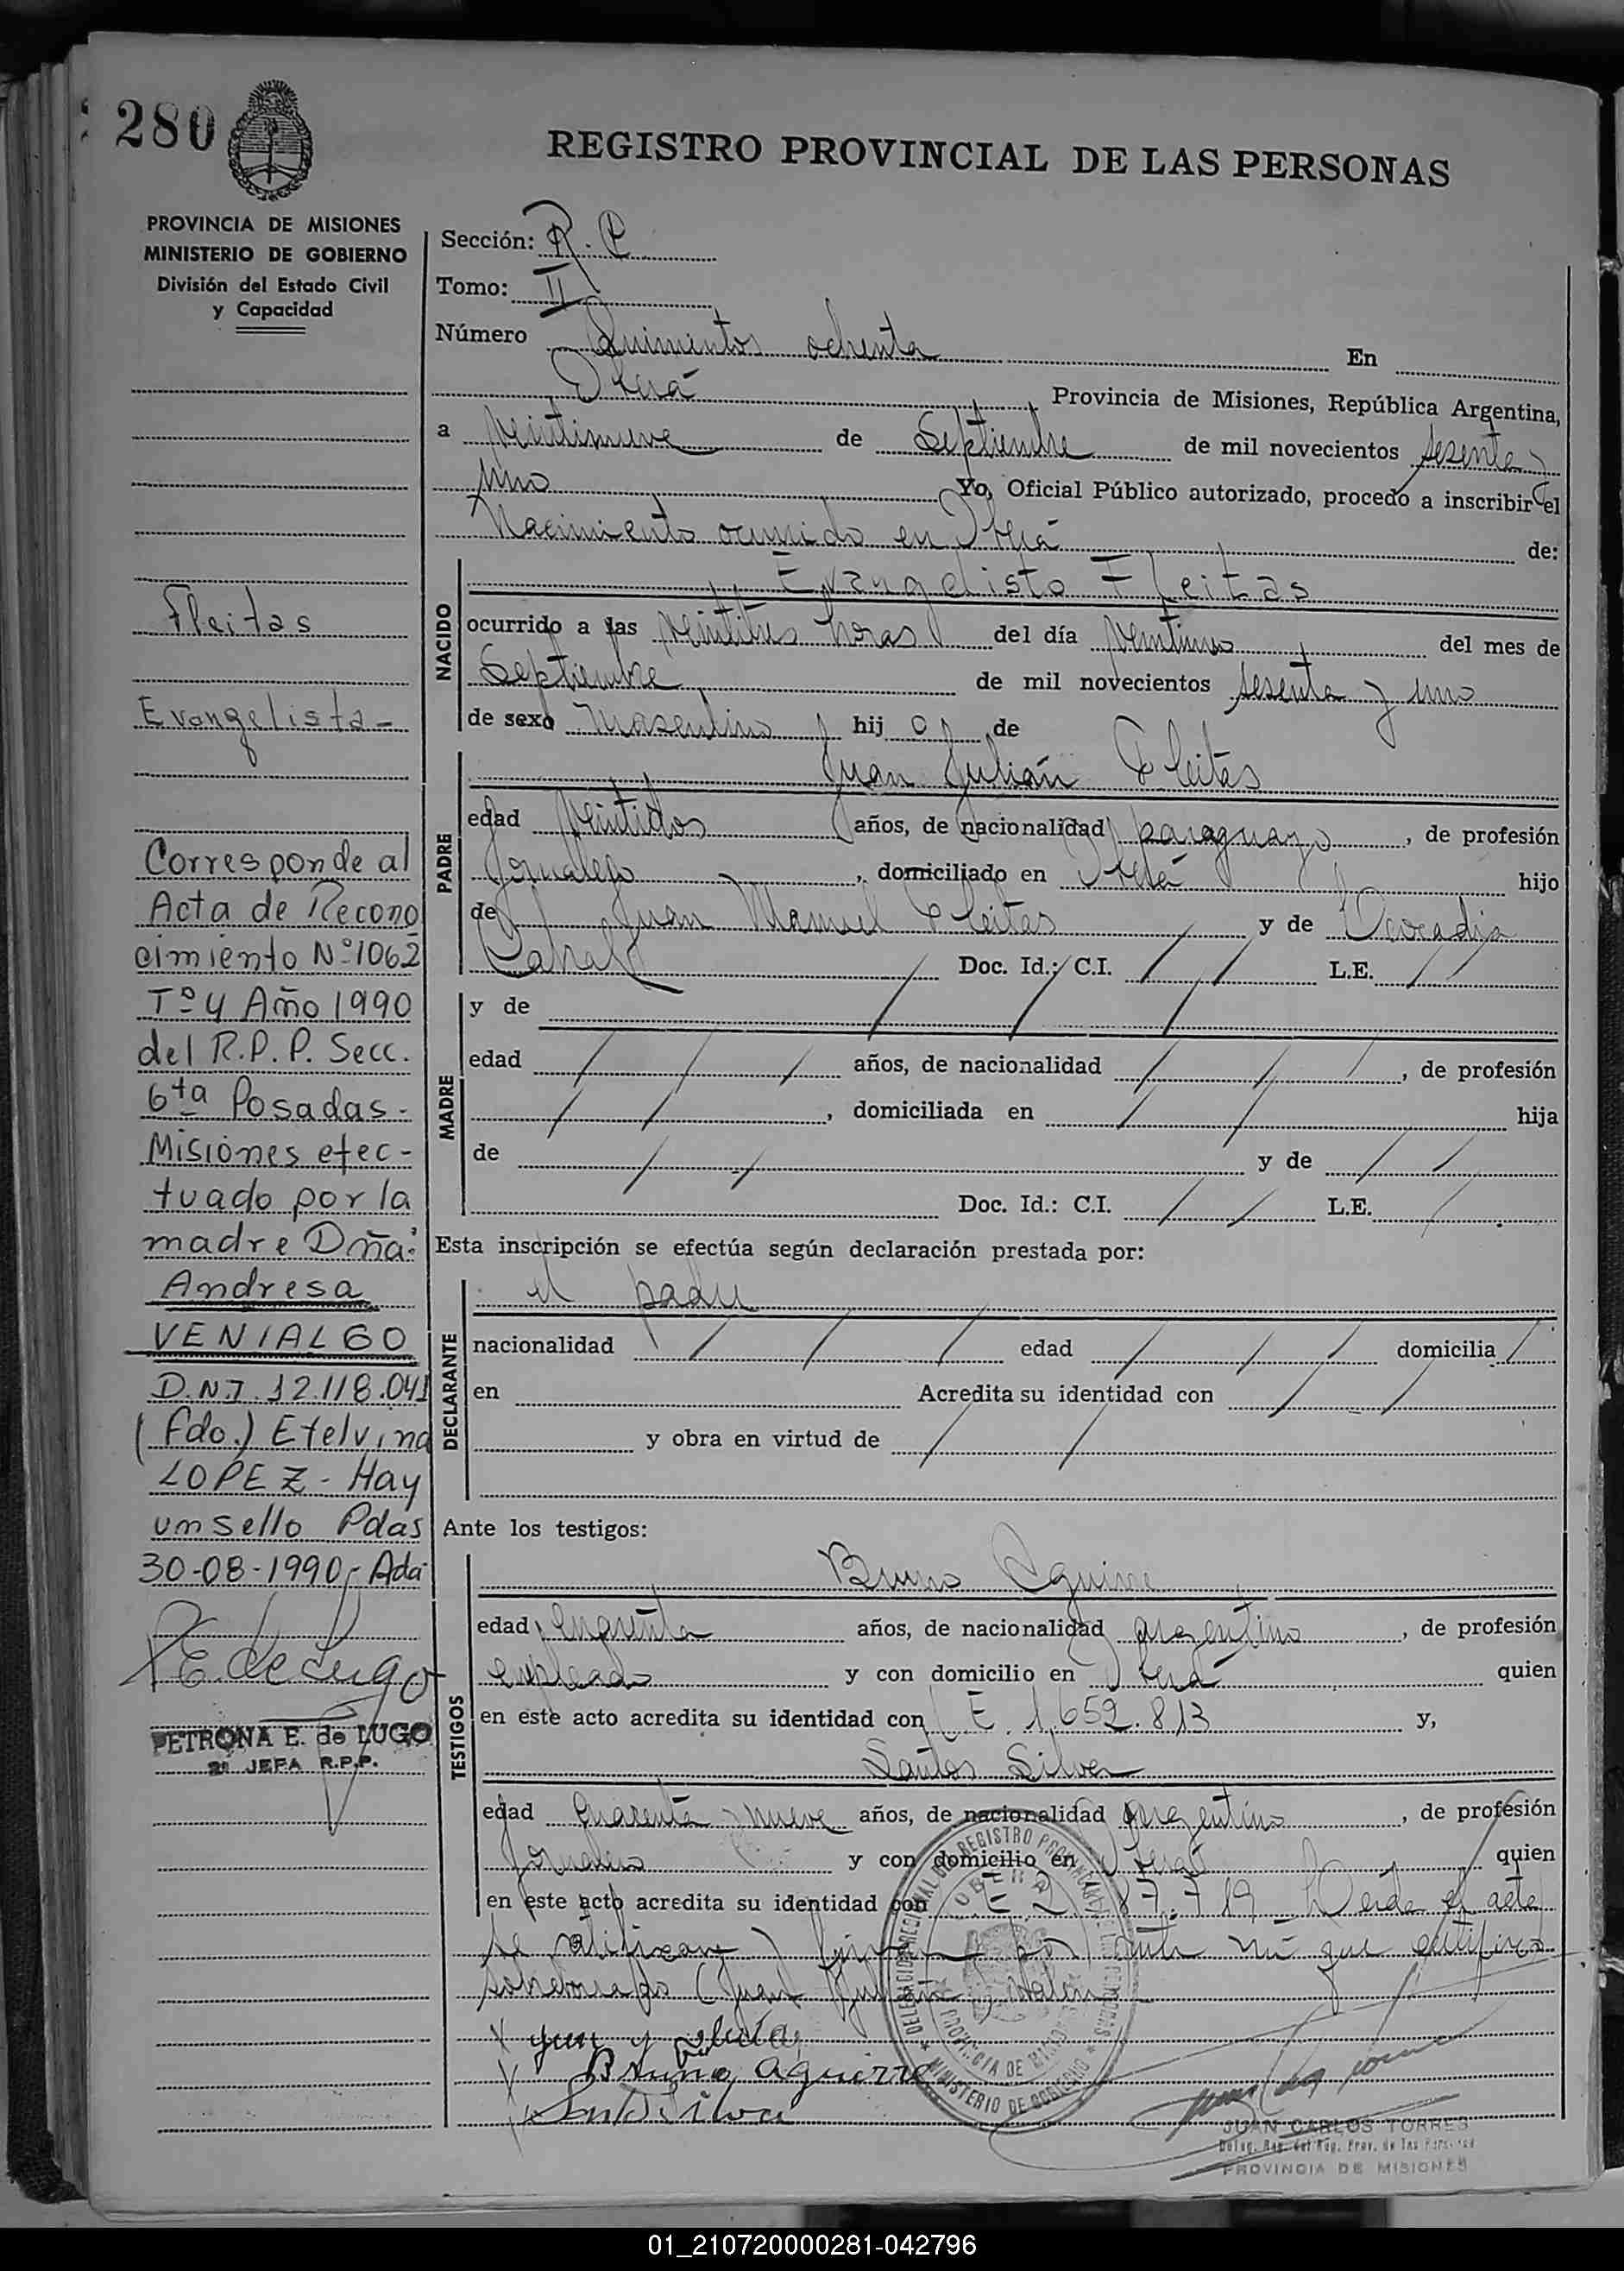 280
REGISTRO PROVINCIAL DE LAS PERSONAS
PROVINCIA DE MISIONES
MINISTERIO DE GOBIERNO
División del Estado Civil
y Capacidad
Fleitas
Evangelista -
Corresponde al
Acta de Recono
cimiento Nº 1062
Tº 4 Año 1990
del R.P.P. Secc.
6ta Posadas -
Misiones efec-
tuado por la
madre Dña:
Andresa
VENIALGO
D.N.I. 12.118.041
(Fdo.) Etelvina
LOPEZ - Hay
un sello Pdas
30-08-1990 - Ada
PE de Lugo
PETRONA E. de LUGO
2º JEFA R.P.P.
Sección: R. P.
Tomo: II
Número Quinientos ochenta En
Oberá Provincia de Misiones, República Argentina,
a veintinueve de Septiembre de mil novecientos sesenta y
uno Yo, Oficial Público autorizado, procedo a inscribir el
Nacimiento ocurrido en Oberá de:
NACIDO
Evangelisto Fleitas
ocurrido a las veintitres horas del día veintiuno del mes de
Septiembre de mil novecientos sesenta y uno
de sexo Masculino hij o de
PADRE
Juan Julián Fleitas
edad veintidos años, de nacionalidad paraguayo, de profesión
Jornalero, domiciliado en Oberá hijo
de Juan Manuel Fleitas y de Leocadia
Cabral Doc. Id.: C.I. / / L.E. / /
MADRE
y de / / /
edad / / / años, de nacionalidad / / /, de profesión
/ /, domiciliada en / / hija
de / / y de / /
Doc. Id.: C.I. / / L.E. /
Esta inscripción se efectúa según declaración prestada por:
DECLARANTE
el padre
nacionalidad / / / edad / / / domicilia /
en Acredita su identidad con / /
y obra en virtud de / /
Ante los testigos:
TESTIGOS
Bruno Aguirre
edad cuarenta años, de nacionalidad argentino, de profesión
empleado y con domicilio en Oberá quien
en este acto acredita su identidad con L E. 1.652.813 y,
Santos Silver
edad cuarenta y nueve años, de nacionalidad argentino, de profesión
Jornalero y con domicilio en Oberá quien
en este acto acredita su identidad con Leida el acta
se ratifican y firman por ante mi que certifico
sobreborrado (Juan Julián) Vale
X
X Bruno Aguirre
DELEGACION REGIONAL DEL REGISTRO PROVINCIAL DE LAS PERSONAS
OBERA
PROVINCIA DE MISIONES
MINISTERIO DE GOBIERNO
JUAN CARLOS TORRES
Deleg. Reg. del Reg. Prov. de las Personas
PROVINCIA DE MISIONES
01_210720000281-042796